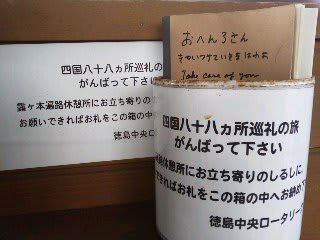 四国八十八ヵ所巡礼の
がんばって下さい
霧ヶ本遍路休憩所にお立ち寄りの
お願いできればお札をこの箱の中
徳島中央
おへんろさん
Take care of you
四国八十八ヵ所巡礼の旅
がんばって下さい
遍路休憩所にお立ち寄りのしるしに、
できればお札をこの箱の中へお納め下
徳島中央ロータリー